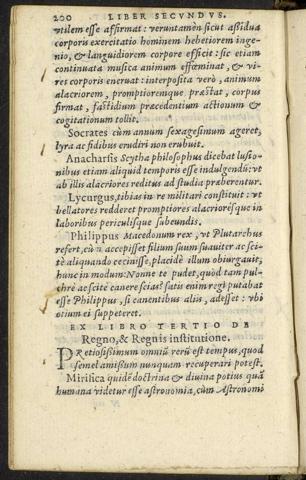 200 LIBER SECVNDVS.
vtilem esse affirmat: veruntamèn sicut assidua
corporis exercitatio hominem hebetiorem inge-
nio, & languidiorem corpore efficit: sic etiam
continuata musica animum effeminat, & vi-
res corporis eneruat: interposita verò, animum
alacriorem, promptioremque præstat, corpus
firmat, fastidium præcedentium actionum &
cogitationum tollit.
Socrates cùm annum sexagesimum ageret,
lyra ac fidibus erudiri non erubuit.
Anacharsis Scytha philosophus dicebat lusio-
nibus etiam aliquid temporis esse indulgendū: vt
ab illis alacriores reditus ad studia præberentur.
Lycurgus, tibias in re militari constituit: vt
bellatores redderet promptiores alacrioresque in
laboribus periculisque subeundis.
Philippus Macedonum rex, vt Plutarchus
refert, cùm accepisset filium suum suauiter ac sci-
tè aliquando cecinisse, placidè illum obiurgauit,
hunc in modum: Nonne te pudet, quòd tam pul-
chrè ac scitè canere scias? satis enim regi putabat
esse Philippus, si canentibus aliis, adesset: vbi
otium ei suppeteret.
EX LIBRO TERTIO DE
Regno, & Regnis institutione.
PRetiosissimum omniū rerū est tempus, quod
semel amissum nunquam recuperari potest.
Mirifica quidē doctrina & diuina potius quā
humana videtur esse astronomia, cùm Astronomi